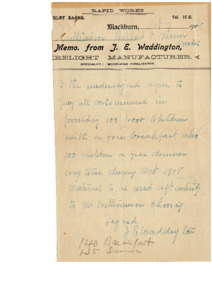 RAPID WORKS
Tel. 15 X.
Blackburn,
Memo. from J. E. Waddington,
FIRELIGHT MANUFACTURER.
I the undersigned agree to
pay all costs incurred in
providing 100 poor children
with a free breakfast also
100 children a free dinner
any time during Oct 1915
Material to be used left entirely
to Mr Williamson choosing
Signed
J E Waddington
140 Breakfast
125 Dinner